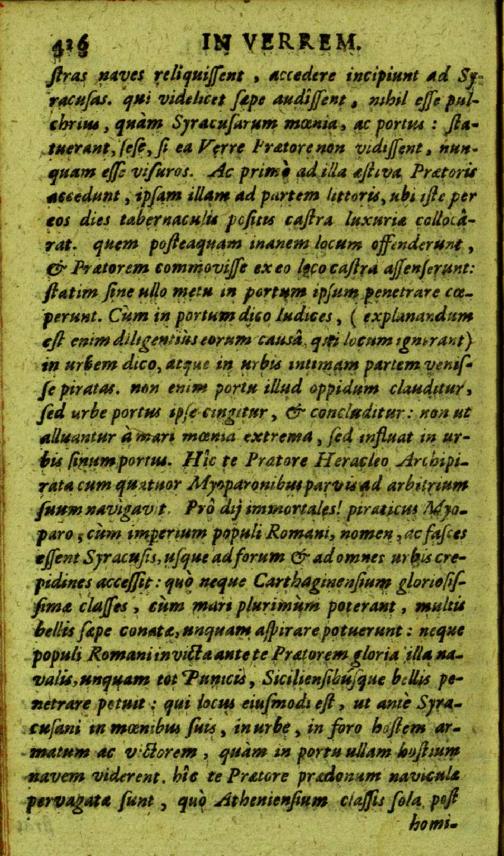 426 IN VERREM.
stras naves reliquissent, accedere incipiunt ad Sy-
racusas. qui videlicet sæpe audissent, nihil esse pul-
chrius, quàm Syracusarum mœnia, ac portus: sta-
tuerant, sese, si ea Verre Prætore non vidissent, nun-
quam esse visuros. Ac primò ad illa æstiva Prætoris
accedunt, ipsam illam ad partem littoris, ubi iste per
eos dies tabernaculis positis castra luxuriæ collocâ-
rat. quem posteaquam inanem locum offenderunt,
& Prætorem commovisse ex eo loco castra assenserunt:
statim sine ullo metu in portum ipsum penetrare cœ-
perunt. Cùm in portum dico Iudices, (explanandum
est enim diligentiùs eorum causâ, qui locum ignorant)
in urbem dico, atque in urbis intimam partem venis-
se piratas. non enim portu illud oppidum clauditur,
sed urbe portus ipse cingitur, & concluditur: non ut
alluantur à mari mœnia extrema, sed influat in ur-
bis sinum portus. Hîc te Prætore Heracleo Archipi-
rata cum quatuor Myoparonibus parvis ad arbitrium
suum navigavit. Prô dij immortales! piraticus Myo-
paro, cùm imperium populi Romani, nomen, ac fasces
essent Syracusis, usque ad forum & ad omnes urbis cre-
pidines accessit: quò neque Carthaginensium gloriosis-
simæ classes, cùm mari plurimùm poterant, multis
bellis sæpe conatæ, unquam aspirare potuerunt: neque
populi Romani invicta ante te Prætorem gloria illa na-
valis, unquam tot Punicis, Siciliensibúsque bellis pe-
netrare potuit: qui locus eiusmodi est, ut ante Syra-
cusani in mœnibus suis, in urbe, in foro hostem ar-
matum ac victorem, quàm in portu ullam hostium
navem viderent. hîc te Prætore prædonum naviculæ
pervagatæ sunt, quò Atheniensium classis sola, post
homi-